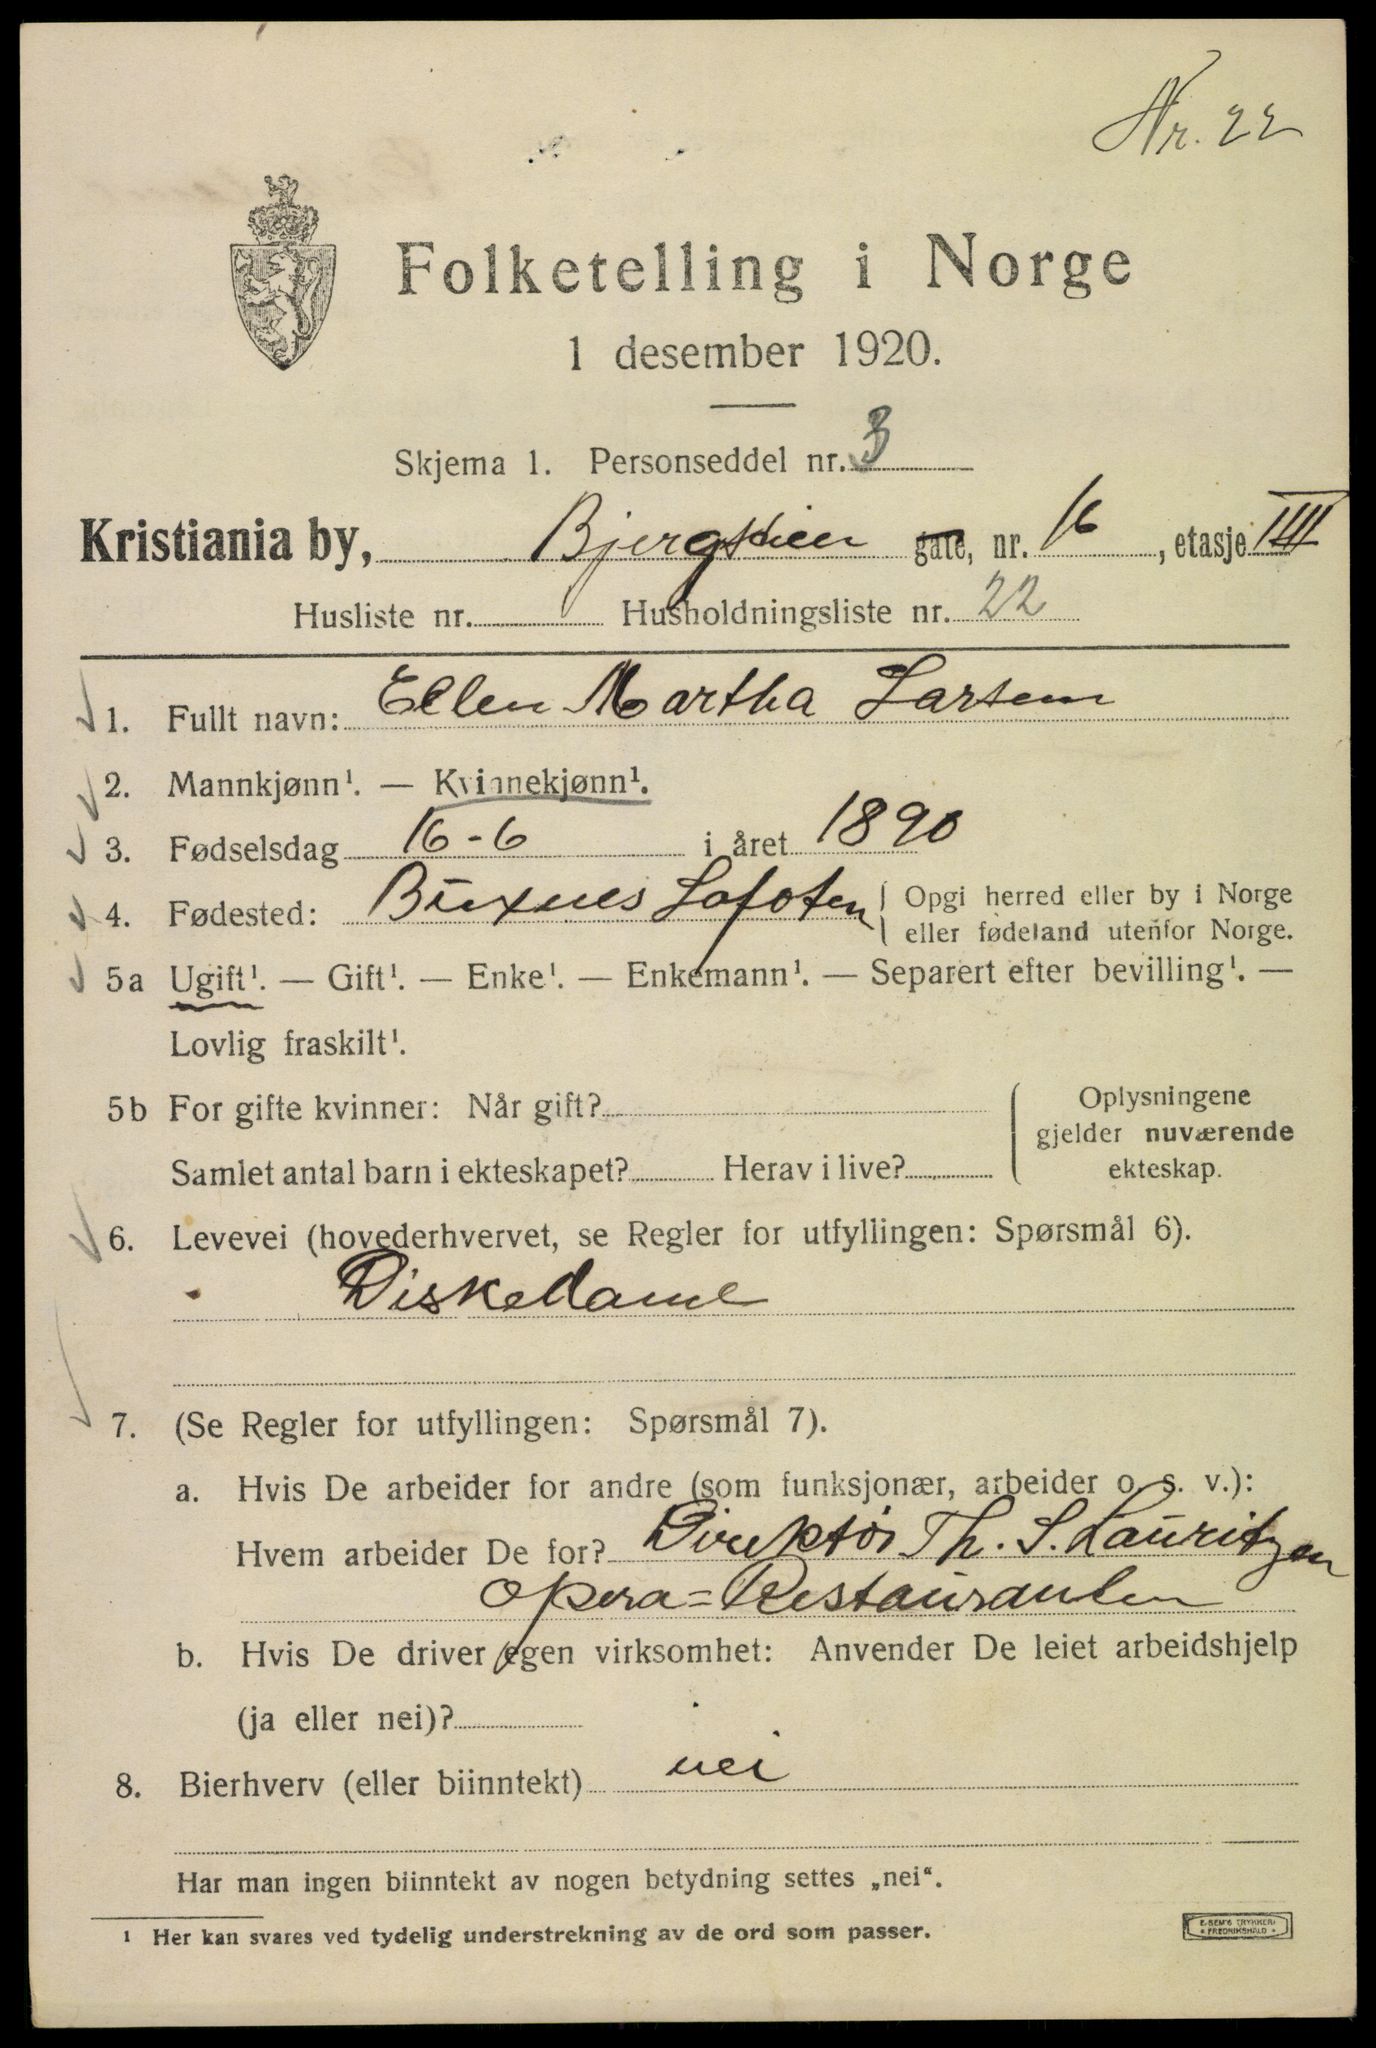 Nr. 22
Folketelling i Norge
1 desember 1920.
Skjema 1. Personseddel nr. 3
Kristiania by, Bjergstien gate, nr. 16, etasje IIII
Husliste nr. Husholdningsliste nr. 22
1. Fullt navn: Ellen Martha Larsen
2. Mannkjønn¹. — Kvinnekjønn¹.
3. Fødselsdag 16-6 i året 1890
4. Fødested: Buxnes Lofoten { Opgi herred eller by i Norge
eller fødeland utenfor Norge.
5a Ugift¹. — Gift¹. — Enke¹. — Enkemann¹. — Separert efter bevilling¹. —
Lovlig fraskilt¹.
5b For gifte kvinner: Når gift? Oplysningene
gjelder nuværende
Samlet antal barn i ekteskapet? Herav i live? ekteskap.
6. Levevei (hovederhvervet, se Regler for utfyllingen: Spørsmål 6).
Diskedame
7. (Se Regler for utfyllingen: Spørsmål 7).
a. Hvis De arbeider for andre (som funksjonær, arbeider o. s. v.):
Hvem arbeider De for? Direktør Th. S. Lauritzen
Opera=Restauranten
b. Hvis De driver egen virksomhet: Anvender De leiet arbeidshjelp
(ja eller nei)?
8. Bierhverv (eller biinntekt) nei
Har man ingen biinntekt av nogen betydning settes „nei“.
¹ Her kan svares ved tydelig understrekning av de ord som passer.
E. SEM'S TRYKKERI
• FREDRIKSHALD •